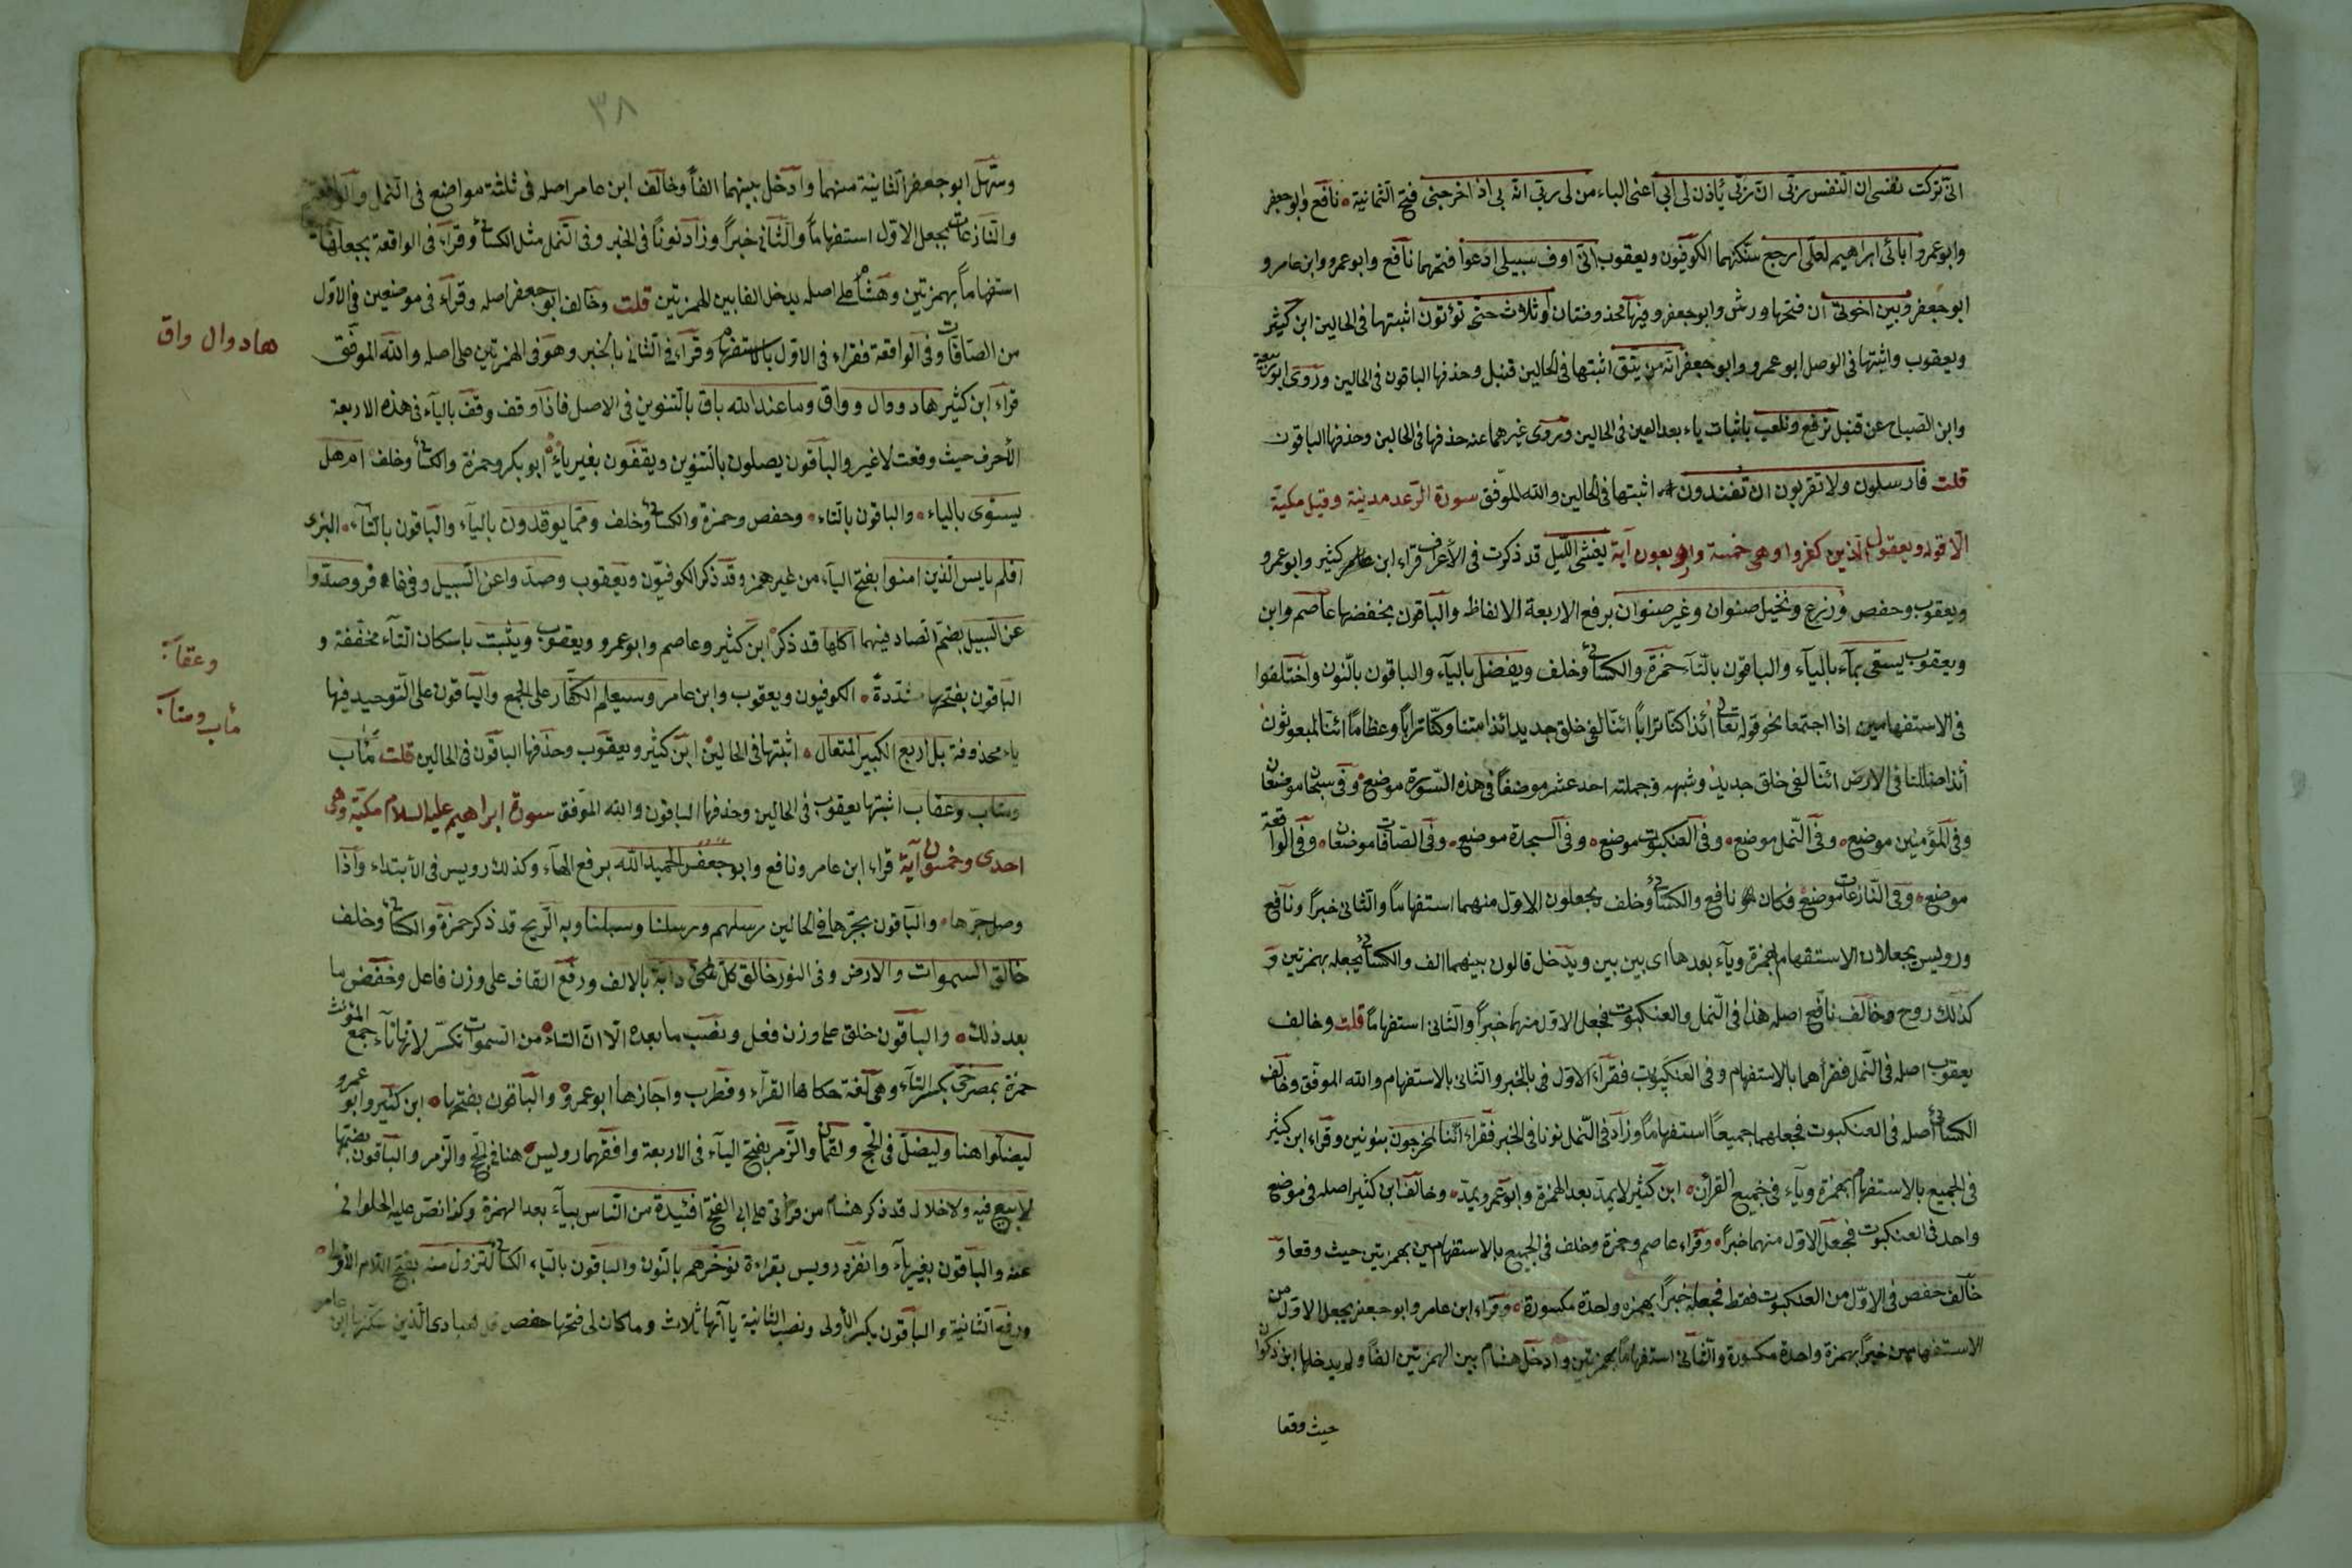 انى تركت نفسى ان النفس ربى ان ربى ياذن لى ابى اعنى الياء من لى ربى انه بى اذ اخرجنى فتح الثمانية نافع وابو جعفر
وابو عمرو اباءى ابراهيم لعلى ارجع سكنهما الكوفيون ويعقوب انى اوف سبيلى ادعوا فتحهما نافع وابو عمرو وابن عامر و
ابو جعفر وبين اخوتى ان فتحها ورش وابو جعفر وفيها محذوفتان وثلاث حتى تؤتون اثبتها فى الحالين ابن كثير
ويعقوب واثبتها فى الوصل ابو عمرو وابو جعفر انه من يتق اثبتها فى الحالين قنبل وحذفها الباقون فى الحالين وروى ابو ربيعة
وابن الصباح عن قنبل نرتع ونلعب باثبات ياء بعد العين فى الحالين وروى غيرهما عنه حذفها فى الحالين وحذفها الباقون
قلت فارسلون ولا تقربون ان تفندون اثبتها فى الحالين والله الموفق سورة الرعد مدنية وقيل مكية
الا قوله ويقول الذين كفروا وهى خمسة واربعون آية يغشى الليل قد ذكرت فى الاعراف قراء ابن كثير وابو عمرو
ويعقوب وحفص وزرع ونخيل صنوان وغير صنوان برفع الاربعة الالفاظ والباقون بخفضها عاصم وابن
ويعقوب يسقى بمآء بالياء والباقون بالتاء حمزة والكسائى وخلف ويفضل بالياء والباقون بالنون واختلفوا
فى الاستفهامين اذا اجتمعا نحو قوله تعالى أئذا كنا ترابا ائنا لفى خلق جديد ائذا متنا وكنا ترابا وعظاما ائنا لمبعوثون
أئذا ضللنا فى الارض ائنا لفى خلق جديد وشبهه وجملته احد عشر موضعا فى هذه السورة موضع وفى سبحان موضعان
وفى المؤمنين موضع وفى النمل موضع وفى العنكبوت موضع وفى السجدة موضع وفى الصافات موضعان وفى الواقعة
موضع وفى النازعات موضع فكان نافع والكسائى وخلف يجعلون الاول منهما استفهاما والثانى خبرا ونافع
ورويس يجعلان الاستفهام بهمزة وياء بعدها اى بين بين ويدخل قالون بينهما الف والكسائى يجعله بهمزتين و
كذلك روح وخالف نافع اصله هذا فى النمل والعنكبوت فجعل الاول منهما خبرا والثانى استفهاما قلت وخالف
يعقوب اصله فى النمل فقرأهما بالاستفهام وفى العنكبوت فقرأ الاول فى بالخبر والثانى بالاستفهام والله الموفق وخالف
الكسائى اصله فى العنكبوت فجعلهما جميعا استفهاما وزاد فى النمل نونا فى الخبر فقراء ائننا لمخرجون بنونين وقراء ابن كثير
فى الجميع بالاستفهام بهمزة وياء فى جميع القرآن ابن كثير لا يمد بعد الهمزة وابو عمرو يمد وخالف ابن كثير اصله فى موضع
واحد فى العنكبوت فجعل الاول منهما خبرا وقراء عاصم وحمزة وخلف فى الجميع بالاستفهامين بهمزتين حيث وقعا و
خالف حفص فى الاول من العنكبوت فقط فجعله خبرا بهمزه واحدة مكسورة وقراء ابن عامر وابو جعفر بجعل الاول من
الاستفهامين خبرا بهمزة واحدة مكسورة والثانى استفهاما بهمزتين وادخل هشام بين الهمزتين الفا ولم يدخلها ابن ذكوان
حيث وقعا
٣٨
وسهل ابو جعفر الثانية منهما وادخل بينهما الفا وخالف ابن عامر اصله فى ثلثة مواضع فى النمل والواقعة
والنازعات بجعل الاول استفهاما والثانى خبرا وزاد نونا فى الخبر وفى النمل مثل الكسائى وقراء فى الواقعة بجعلهما
استفهاما بهمزتين وهشام على اصله يدخل الفا بين الهمزتين قلت وخالف ابو جعفر اصله وقراء فى موضعين فى الاول
من الصافات وفى الواقعة فقراء فى الاول بالاستفهام وقراء فى الثانى بالخبر وهو فى الهمزتين على اصله والله الموفق
هاد وال واق
قراء ابن كثير هاد ووال وواق وما عند الله باق بالتنوين فى الاصل فاذا وقف وقف بالياء فى هذه الاربعة
الأحرف حيث وقعت لا غير والباقون يصلون بالتنوين ويقفون بغير ياء ابو بكر وحمزة والكسائى وخلف ام هل
يستوى بالياء والباقون بالتاء وحفص وحمزة والكسائى وخلف ومما يوقدون بالياء والباقون بالتاء البزى
افلم يايس الذين امنوا بفتح الياء من غير همز وقد ذكر الكوفيون ويعقوب وصدوا عن السبيل وفى غافر وصدوا
عن السبيل بضم الصاد فيهما اكلها قد ذكر ابن كثير وعاصم وابو عمرو ويعقوب ويثبت باسكان الثاء مخففة و
وعقاب
الباقون بفتحها مشددة الكوفيون ويعقوب وابن عامر وسيعلم الكفار على الجمع والباقون على التوحيد فيها
مأب ومتاب
ياء محذوفة بل اربع الكبير المتعال اثبتها فى الحالين ابن كثير ويعقوب وحذفها الباقون فى الحالين قلت مئاب
ومتاب وعقاب اثبتها يعقوب فى الحالين وحذفها الباقون والله الموفق سورة ابراهيم عليه السلام مكية وهى
احدى وخمسون آية قراء ابن عامر ونافع وابو جعفر الحميد الله برفع الهاء وكذلك رويس فى الابتداء واذا
وصل جرها والباقون بجرها فى الحالين رسلهم ورسلنا وسبلنا وبه الريح قد ذكر حمزة والكسائى وخلف
خالق السموات والارض وفى النور خالق كل دابة بالالف ورفع القاف على وزن فاعل وخفض ما
بعد ذلك والباقون خلق على وزن فعل ونصب ما بعده الا ان التاء من السموات تكسر لانها تاء جمع المؤنث
حمزة بمصرخى بكسر الياء وهى لغة حكاها الفراء وقطرب واجازها ابو عمرو والباقون بفتحها ابن كثير وابو عمرو
ليضلوا هنا وليضل فى الحج ولقمان والزمر بفتح الياء فى الاربعة وافقهما رويس هنا فى الحج والزمر والباقون بضمها
لا بيع فيه ولا خلال قد ذكر هشام من قرأتى على ابى الفتح افئيدة من الناس بياء بعد الهمزة وكذا نص عليه الحلوانى
عنه والباقون بغير ياء وانفرد رويس بقراءة نؤخرهم بالنون والباقون بالياء الكسائى لتزول منه بفتح اللام الاولى
ورفع الثانية والباقون بكسر الأولى ونصب الثانية ياآتها ثلاث وما كان لى فتحها حفص قل لعبادى الذين سكنها ابن عامر